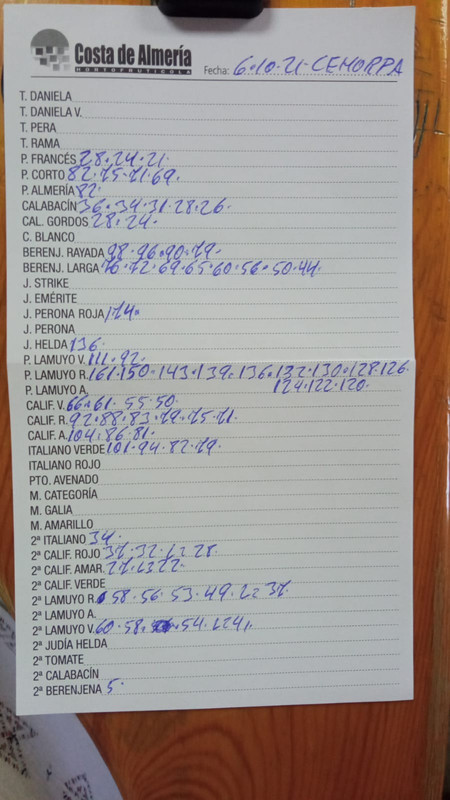 Costa de Almería
HORTOFRUTÍCOLA
Fecha: 6-10-21-CEHORPA
T. DANIELA
T. DANIELA V.
T. PERA
T. RAMA
P. FRANCÉS 28.24.21.
P. CORTO 82.75.71.69.
P. ALMERÍA 82.
CALABACÍN 36.34.31.28.26.
CAL. GORDOS 28.24.
C. BLANCO
BERENJ. RAYADA 98.96.90.79.
BERENJ. LARGA 76.72.69.65.60.56.50.44.
J. STRIKE
J. EMÉRITE
J. PERONA ROJA 174.
J. PERONA
J. HELDA 136.
P. LAMUYO V. 111.92.
P. LAMUYO R. 161.150.143.139.136.132.130.128.126.
P. LAMUYO A. 124.122.120.
CALIF. V. 66.61.55.50.
CALIF. R. 92.88.83.79.75.71.
CALIF. A. 104.86.81.
ITALIANO VERDE 101.94.82.79.
ITALIANO ROJO
PTO. AVENADO
M. CATEGORÍA
M. GALIA
M. AMARILLO
2ª ITALIANO 34.
2ª CALIF. ROJO 37.32. 28.
2ª CALIF. AMAR. 27. 22.
2ª CALIF. VERDE
2ª LAMUYO R. 58.56.53.49. 37.
2ª LAMUYO A.
2ª LAMUYO V. 60.58. 54.
2ª JUDÍA HELDA
2ª TOMATE
2ª CALABACÍN
2ª BERENJENA 5.